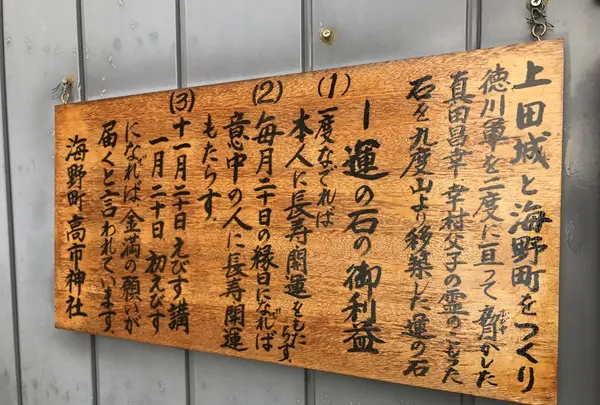 上田城と海野町をつくり
徳川軍を二度に亘って脅かした
真田昌幸 幸村父子の霊のこもた
石を九度山より移築した運の石
｜運の石の御利益
(1)
一度なでれば
本人に長寿開運をもたらす。
(2)
毎月二十日の縁日になでれば
意中の人に長寿開運
もたらす。
(3)
十一月二十日えびす講
一月二十日 初えびす
になれば金満の願いが
届くと言われています
海野町高市神社